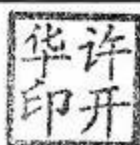 许开
华印